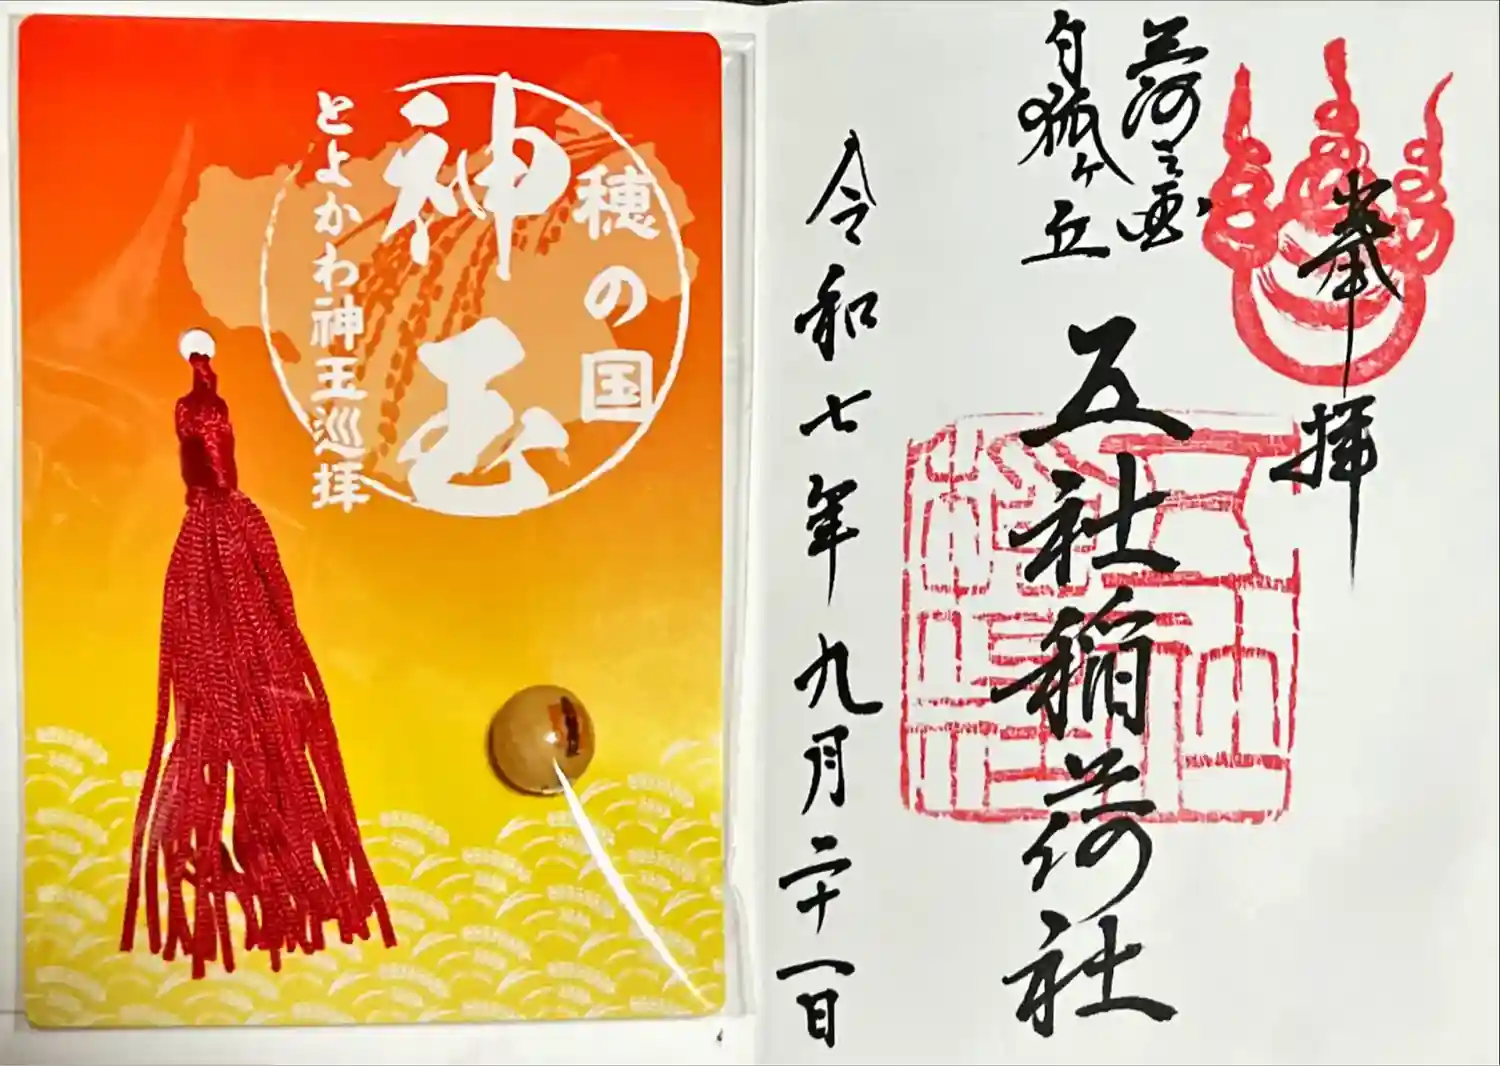 穂の国
神玉
とよかわ神玉巡拝
奉拝
三河之國
白狐ヶ丘
五社稲荷社
令和七年九月二十一日